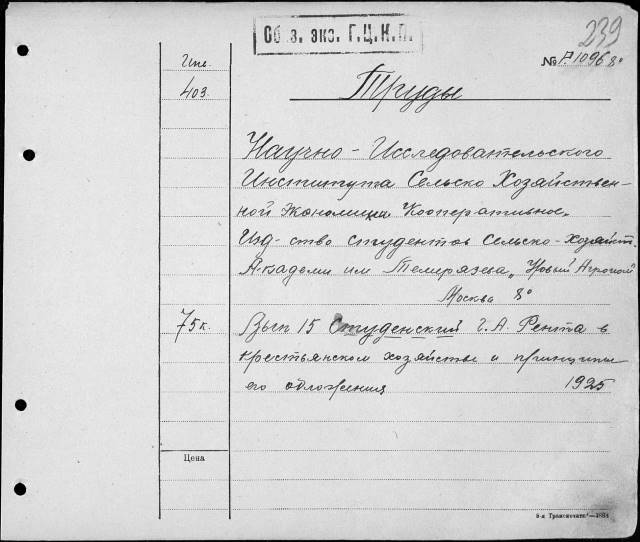 239
Об. з. эко. Г.Ц.К.П.
№ P1096 8°
Инв.
403
Труды
Научно - Исследовательского
Института Сельско Хозяйствен-
ной Экономики Кооперативное
Изд-ство студентов Сельско-хозяйст.
Академи им Темирязева „Новый Агроном
Москва 8°
75 к.
Вып 15 Студенский Г. А. Рента в
крестьянском хозяйстве и принципы
его обложения 1925
Цена
8-я Транспечати—1884